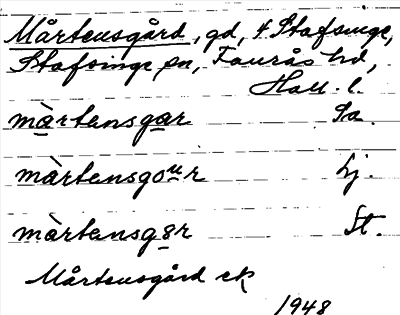 Mårtensgård, gd, 4 Stafsinge,
Stafsinge sn, Faurås hd,
Hall. l.
màrtensgar Sa.
màrtensgour Lj.
màrtensg8r St.
Mårtensgård ek
1948